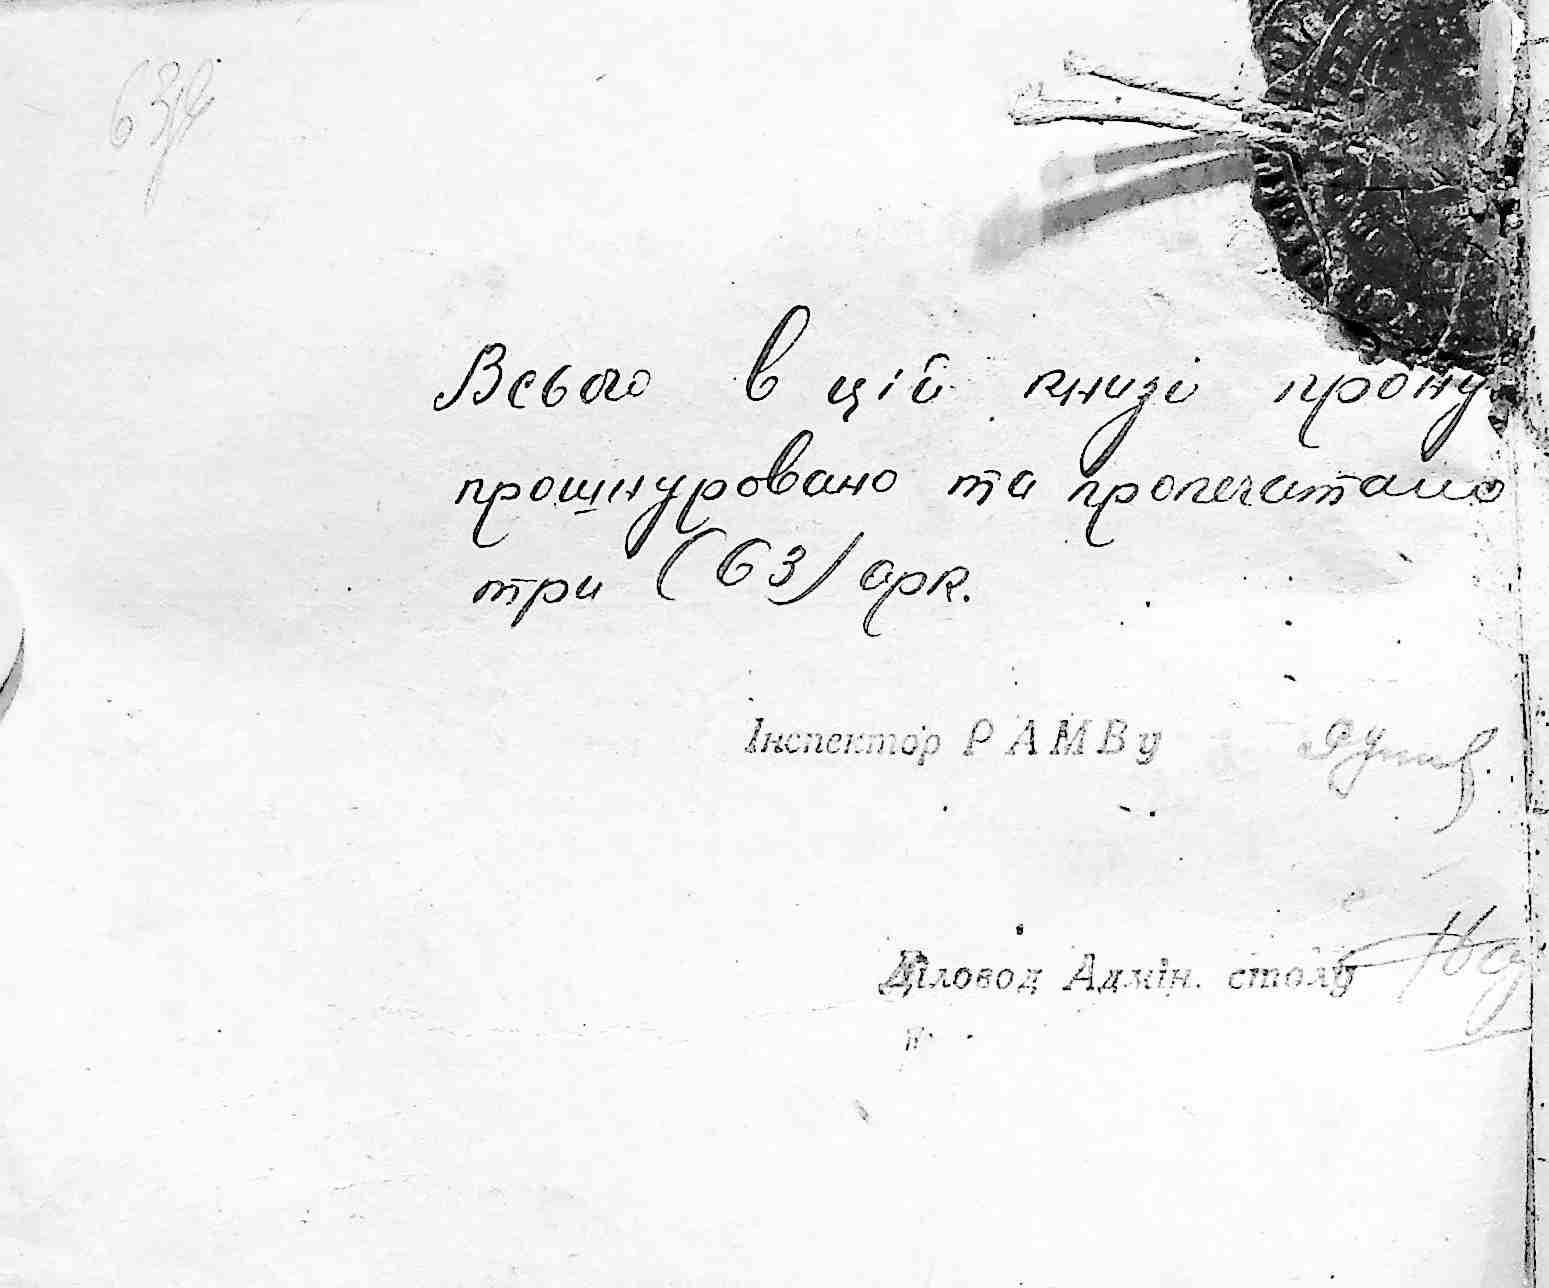 Всього в цій книзі прону
прошнуровано та пропечатано
три (63) арк.
Інспектор РАМВу
Діловод Адмін. столу